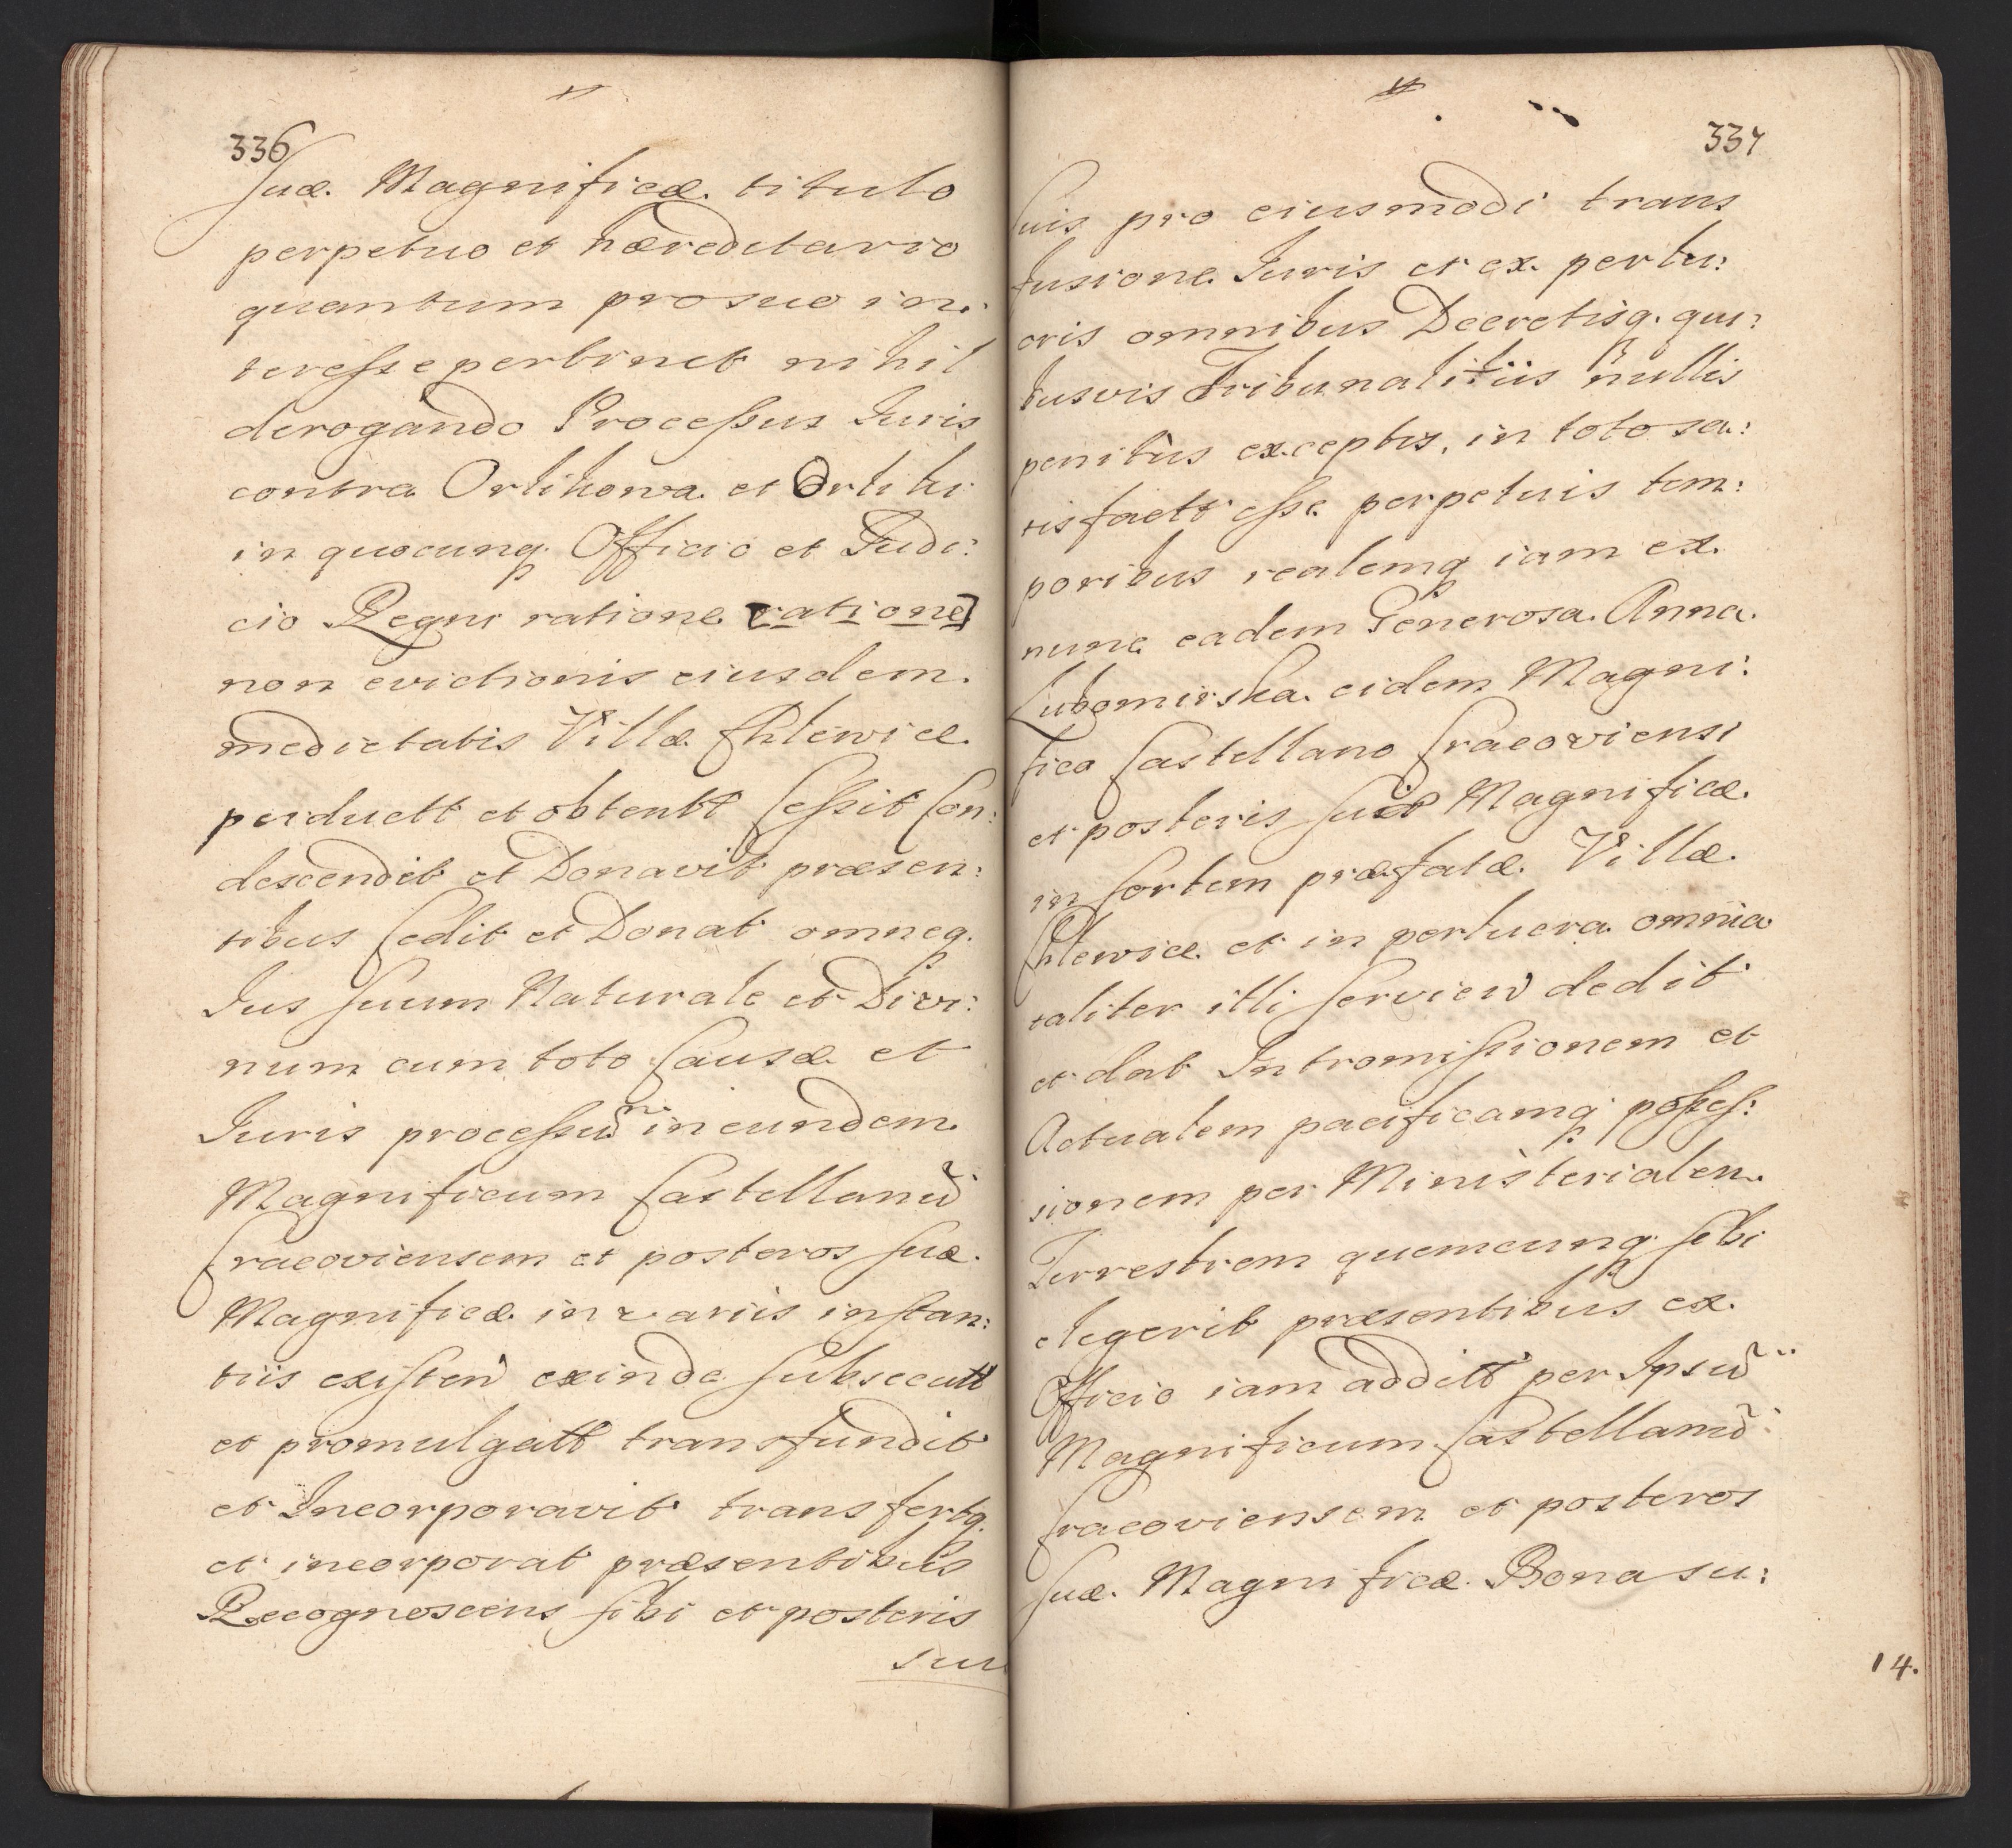 336
suæ Magnificæ titulo
perpetuo et hæreditario
quantum pro suo in:
teresse pertinet nihil
derogando Processus Iuris
contra Orlikowa et Orlihi
in quocunq. Officio et Iudi:
cio Regni ratione [ratione]
non evictionis eiusdem
medietatis Villæ Chlewice
perductt et obtentt Cessit Con:
descendit et Donavit præsen:
tibus Cedit et Donat omneq.
Ius suum Naturale et Divi:
num cum toto Causæ et
Iuris processũ in eundem
Magnificum Castellanũ
Cracoviensem et posteros suæ
Magnificæ in variis instan:
tiis existen exinde subsecutt
et promulgatt transfundit
et Incorporavit transfertq.
et incorporat præsentibus
Recognoscens sibi et posteris
suis
337
suis pro eiusmodi trans
fusione Iuris et ex pertu:
oris omnibus Decretisq. qui:
busvis Tribunalitiis nullis
penitùs exceptis, in toto sa:
tisfactt esse perpetuis tem:
poribus realemq iam ex
nunc eadem Generosa Anna
Lubomirska eidem Magni:
fico Castellano Cracoviensi
et posteris suæ Magnificæ
in sortem præfatæ Villæ
Chlewice et in pertuera omnia
taliter illi servien dedit
et dat Intromissionem et
Actualem pacificamq. posses:
sionem per Ministerialem
Terrestrem quemcunq. sibi
elegerit præsentibus ex
Officio iam additt per Ipsũ
Magnificum Castellanũ
Cracoviensem et posteros
suæ Magnificæ Bona su:
14.